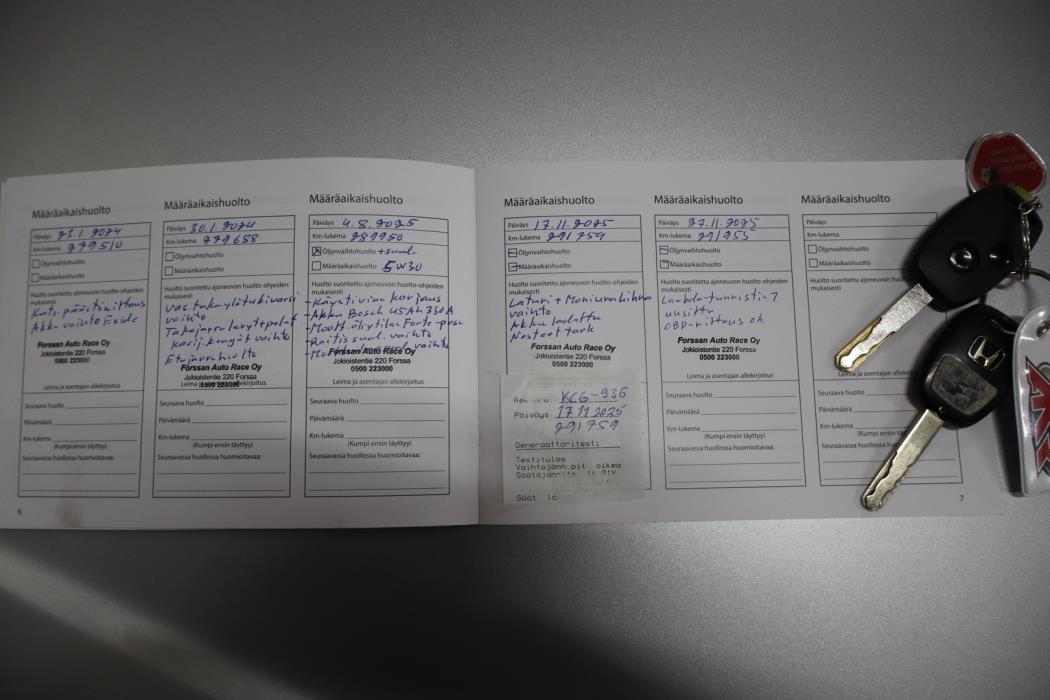 Määräaikaishuolto
Päiväys 23.1.2024
Km-lukema 279510
Öljynvaihtohuolto
Määräaikaishuolto
Huolto suoritettu ajoneuvon huolto-ohjeiden
mukaisesti
Kats. päästömittaus
Akku vaihto Exide
Forssan Auto Race Oy
Jokioistentie 220 Forssa
0500 223000
Leima ja asentajan allekirjoitus
Seuraava huolto
Päivämäärä
Km-lukema
(Kumpi ensin täyttyy)
Seuraavassa huollossa huomioitavaa:
6
Määräaikaishuolto
Päiväys 30.1.2024
Km-lukema 279688
Öljynvaihtohuolto
Määräaikaishuolto
Huolto suoritettu ajoneuvon huolto-ohjeiden
mukaisesti
Vas. taka ylätukivarsi
vaihto
Takajarru levyt + palat
käsij. kengät vaihto
Etujarruhuolto
Forssan Auto Race Oy
Jokioistentie 220 Forssa
0500 223000
Leima ja asentajan allekirjoitus
Seuraava huolto
Päivämäärä
Km-lukema
(Kumpi ensin täyttyy)
Seuraavassa huollossa huomioitavaa:
Määräaikaishuolto
Päiväys 4.8.2025
Km-lukema 289950
Öljynvaihtohuolto + suod.
Määräaikaishuolto 5W30
Huolto suoritettu ajoneuvon huolto-ohjeiden
mukaisesti
- Käyntivian korjaus
- Akku Bosch 45Ah 330A
- Moott. öljytilan Forte-pesu
- Raitis suod. vaihto
- vaihto
Forssan Auto Race Oy
Jokioistentie 220 Forssa
0500 223000
Leima ja asentajan allekirjoitus
Seuraava huolto
Päivämäärä
Km-lukema
(Kumpi ensin täyttyy)
Seuraavassa huollossa huomioitavaa:
Määräaikaishuolto
Päiväys 17.11.2025
Km-lukema 291759
Öljynvaihtohuolto
Määräaikaishuolto
Huolto suoritettu ajoneuvon huolto-ohjeiden
mukaisesti
Laturi + Moniurahihna
vaihto
Akku ladattu
Nesteet tark
Forssan Auto Race Oy
Jokioistentie 220 Forssa
0500 223000
Rek nro. KCG-935
Päiväys 17.11.2025
291759
Generaattoritesti
Testitulos
Vaihtojänn.pit. oikea
Määräaikaishuolto
Päiväys 27.11.2025
Km-lukema 291955
Öljynvaihtohuolto
Määräaikaishuolto
Huolto suoritettu ajoneuvon huolto-ohjeiden
mukaisesti
Lambda-tunnistin 7
uusittu
OBD-mittaus ok
Forssan Auto Race Oy
Jokioistentie 220 Forssa
0500 223000
Leima ja asentajan allekirjoitus
Seuraava huolto
Päivämäärä
Km-lukema
(Kumpi ensin täyttyy)
Seuraavassa huollossa huomioitavaa:
Määräaikaishuolto
Päiväys
Km-lukema
Öljynvaihtohuolto
Määräaikaishuolto
Huolto suoritettu ajoneuvon huolto-ohjeiden
mukaisesti
Leima ja asentajan
Seuraava huolto
Päivämäärä
Km-lukema
(Kumpi ensin täyttyy)
Seuraavassa huollossa huomioitavaa:
7